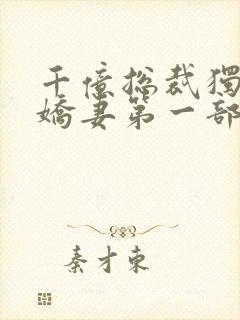 千億总裁獨
嬌妻第一部
秦才東